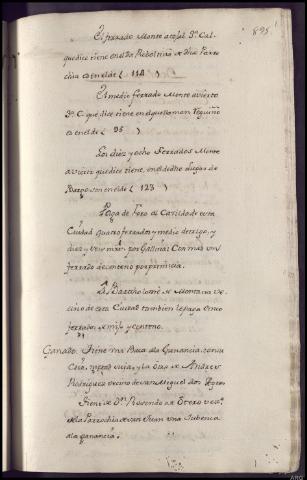 895
El ferrado Monte a tojal D.ª Cal.
que dice tiene en el do Reboltiño de dha Parro
chia es en el de ( 114 )
El medio ferrado Monte avierto
D.ª C. que dice tiene en el que llaman Pequeño
es en el de ( 95 )
Los diez y ocho ferrados Monte
avierto que dice tiene, en el dicho Lugar de
Burgo son en el de ( 123 )
Paga de foro al Cavildo de esta
Ciudad quatro ferrados y medio de trigo, y
diez y seis mrs. por Gallina: Con mas un
ferrado de centeno por primicia.
A Bartholomè de Montana ve
cino de esta Ciudad tambien le paga cinco
ferrados de mijo y centeno.
Ganado. Tiene una Baca ala Ganancia con su
Cria, vieja, y la otra de Andres
Rodriguez vecino de San Miguel dos
Tiene de D.n Rosendo de Erexo vec.º
de la Parrochia de San Juan una Jubenca
ala ganancia.